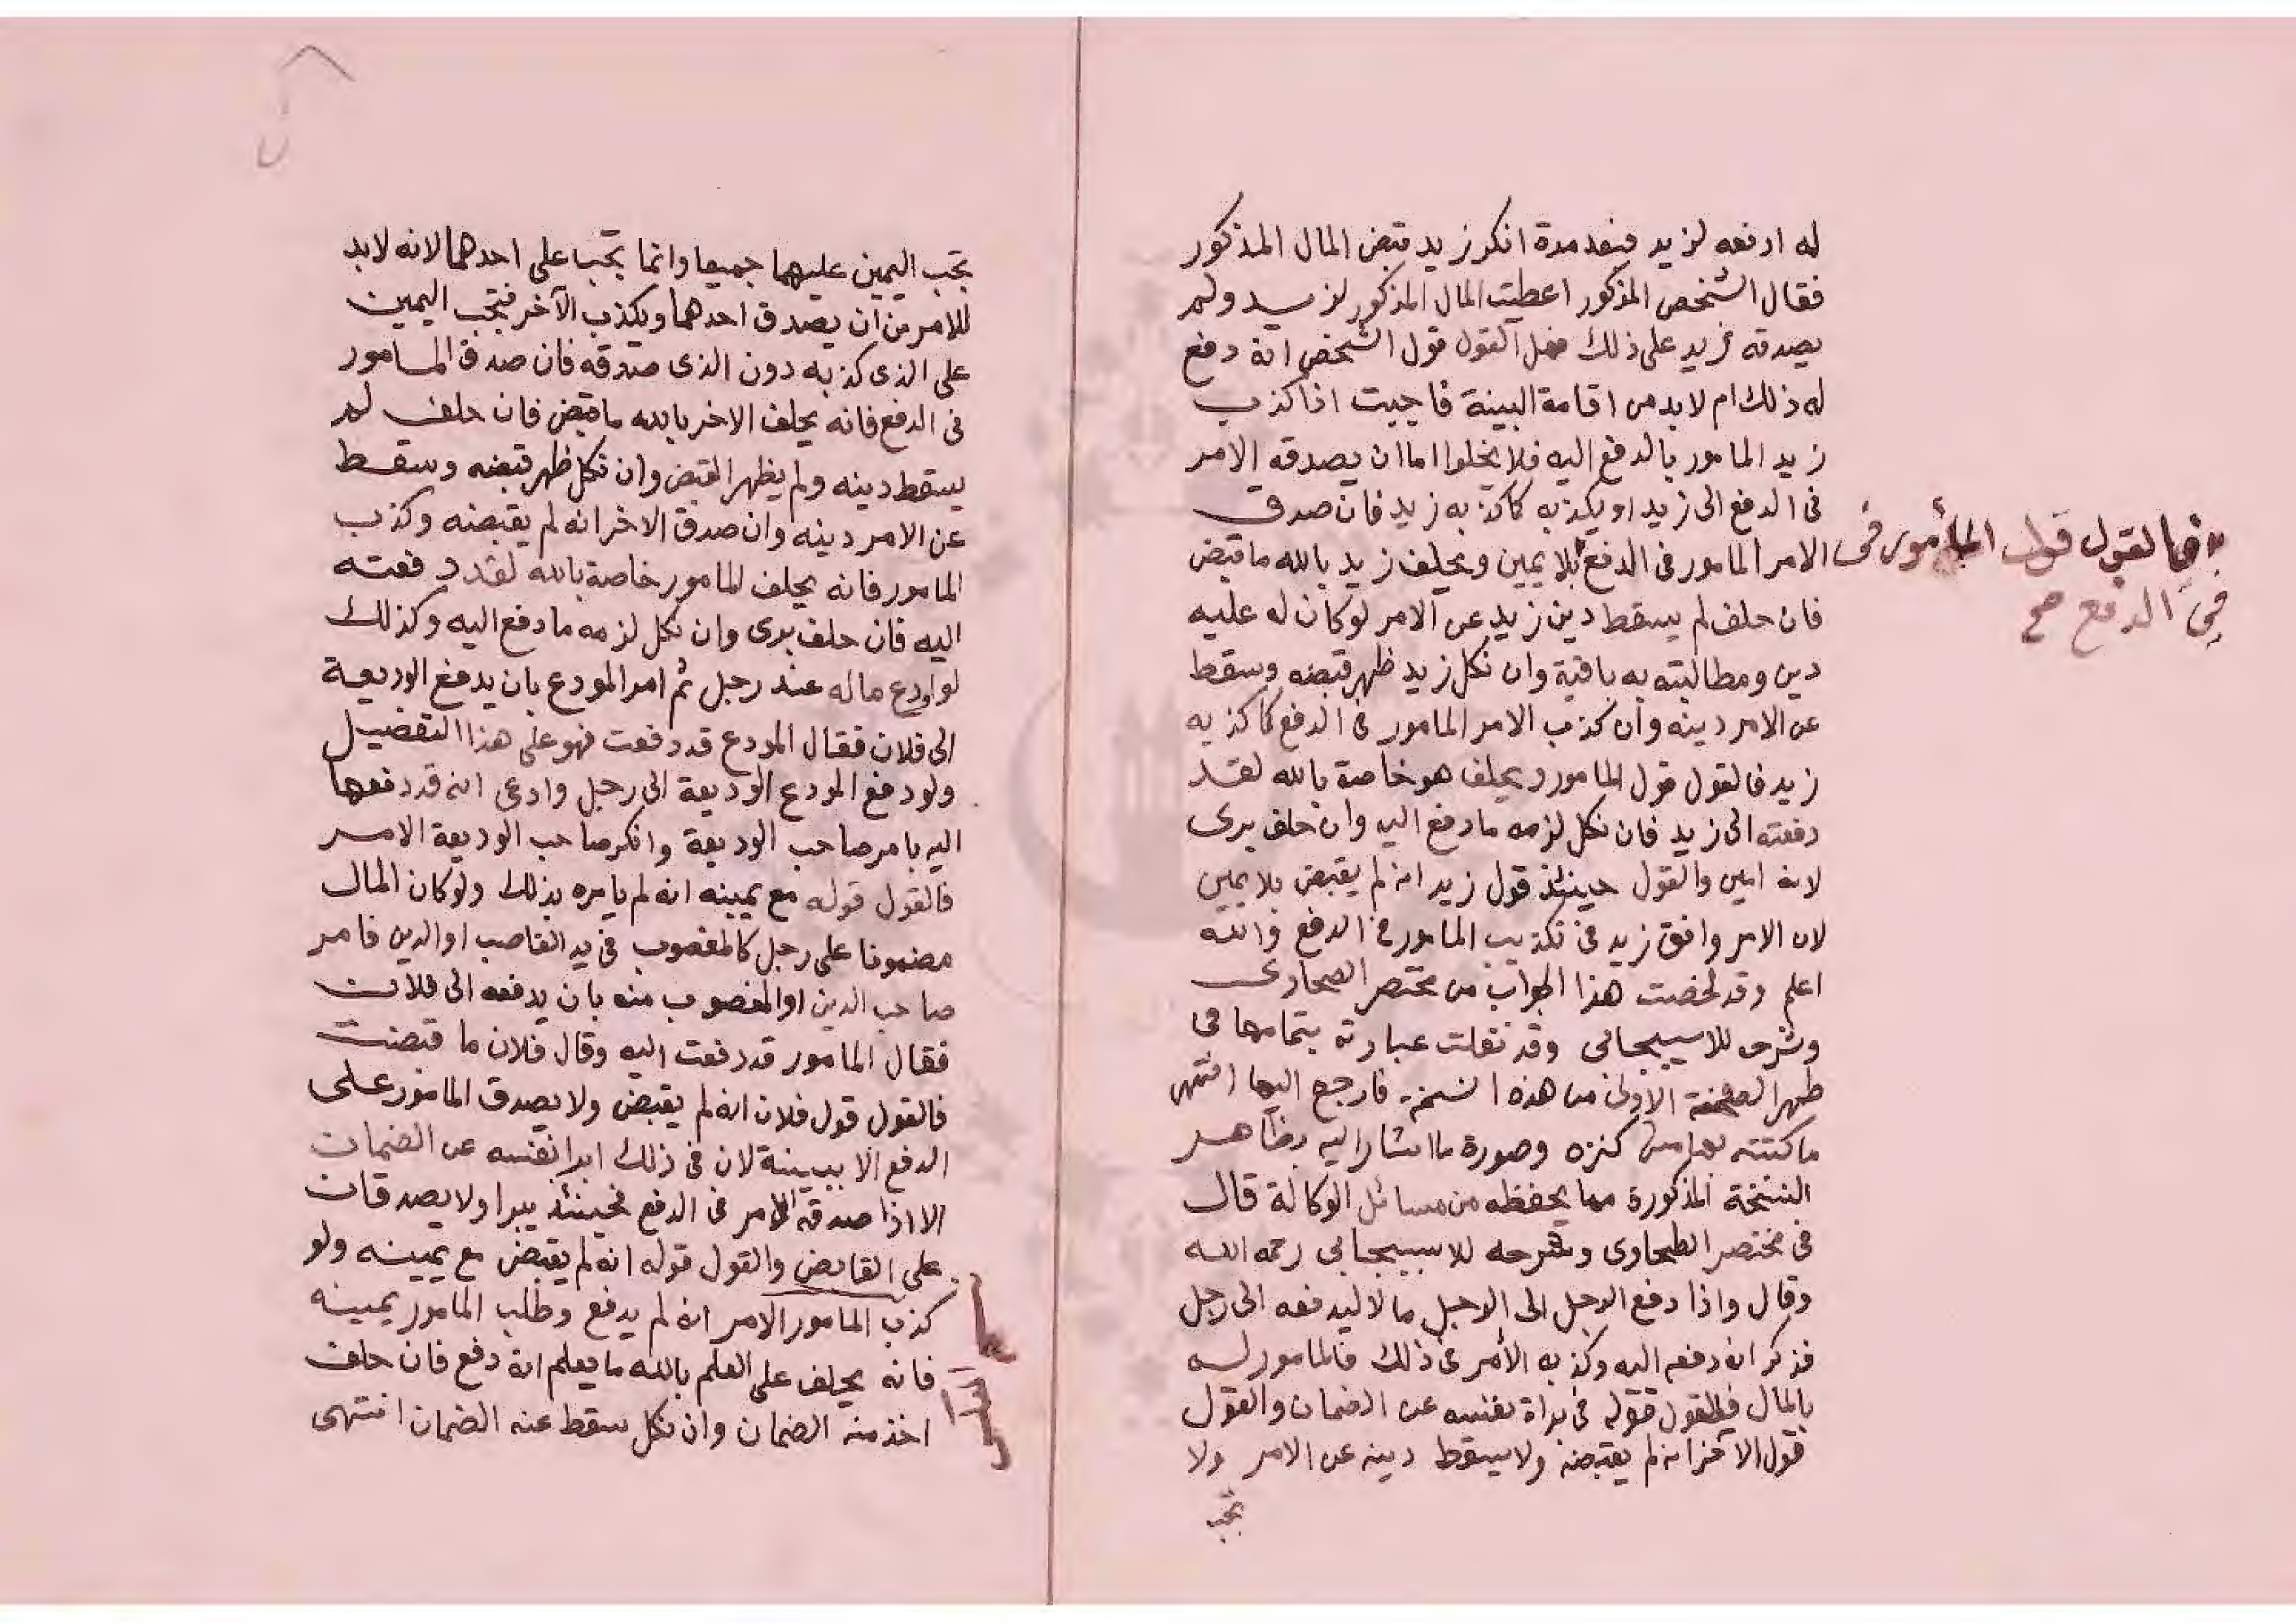 له ادفعه لزيد فبعد مدة انكر زيد قبض المال المذكور
فقال الشخص المذكور اعطيت المال المذكور لزيد ولم
يصدقه زيد على ذلك فهل القول قول الشخص انه دفع
له ذلك ام لا بد من اقامة البينة فاجيبت اذا كذب
زيد المامور بالدفع اليه فلا يخلوا اما ان يصدقه الامر
فى الدفع الى زيد او يكذبه كما كذبه زيد فان صدق
الامر المامور فى الدفع بلا يمين ويحلف زيد بالله ما قبض
فالقول قول المأمور فى
فى الدفع صح
فان حلف لم يسقط دين زيد عن الامر لو كان له عليه
دين ومطالبته به باقية وان نكل زيد ظهر قبضه وسقط
عن الامر دينه وان كذب الامر المامور فى الدفع كما كذبه
زيد فالقول قول المامور ويحلف هو خاصة بالله لقد
دفعته الى زيد فان نكل لزمه ما دفع اليه وان حلف برى
لانه امين والقول حينئذ قول زيد انه لم يقبض بلا يمين
لان الامر وافق زيد فى تكذيب المامور فى الدفع والله
اعلم وقد لخصت هذا الجواب من مختصر الصحاوى
وشرحه للاسبيجابى وقد نقلت عبارته بتمامها فى
ظهر الصفحة الاولى من هذه النسخة فارجع اليها انتهى
ما كتبته بهامش كنزه وصورة ما اشار اليه بظاهر
النسخة المذكورة مما يحفظه من مسائل الوكالة قال
فى مختصر الطحاوى وشرحه للاسبيجابى رحمه الله
وقال واذا دفع الرجل الى الرجل مالا ليدفعه الى رجل
فذكر انه دفعه اليه وكذبه الأمر فى ذلك فالمامور له
بالمال فالقول قوله فى براة نفسه عن الضمان والقول
قول الآخر انه لم يقبضه ولا يسقط دينه عن الامر ولا
تجب
تجب اليمين عليهما جميعا وانما تجب على احدهما لانه لابد
للامر من ان يصدق احدهما ويكذب الآخر فتجب اليمين
على الذى كذبه دون الذى صدقه فان صدق المامور
فى الدفع فانه يحلف الاخر بالله ما قبض فان حلف لم
يسقط دينه ولم يظهر القبض وان نكل ظهر قبضه وسقط
عن الامر دينه وان صدق الاخر انه لم يقبضه وكذب
المامور فانه يحلف المامور خاصة بالله لقد دفعته
اليه فان حلف برى وان نكل لزمه ما دفع اليه وكذلك
لو اودع ماله عند رجل ثم امر المودع بان يدفع الوديعة
الى فلان فقال المودع قد دفعت فهو على هذا التفصيل
ولو دفع المودع الوديعة الى رجل وادعى انه قد دفعها
اليه بامر صاحب الوديعة وانكر صاحب الوديعة الامر
فالقول قوله مع يمينه انه لم يامره بذلك ولو كان المال
مضمونا على رجل كالمغصوب فى يد الغاصب او الدين فامر
صاحب الدين او المغصوب منه بان يدفعه الى فلان
فقال المامور قد دفعت اليه وقال فلان ما قبضت
فالقول قول فلان انه لم يقبض ولا يصدق المامور على
الدفع الا ببينة لان فى ذلك ابرا نفسه عن الضمان
الا اذا صدقه الامر فى الدفع فحينئذ يبرا ولا يصدقان
على القابض والقول قوله انه لم يقبض مع يمينه ولو
كذب المامور الامر انه لم يدفع وطلب المامور يمينه
فانه يحلف على العلم بالله ما يعلم انه دفع فان حلف
اخذ منه الضمان وان نكل سقط عنه الضمان انتهى